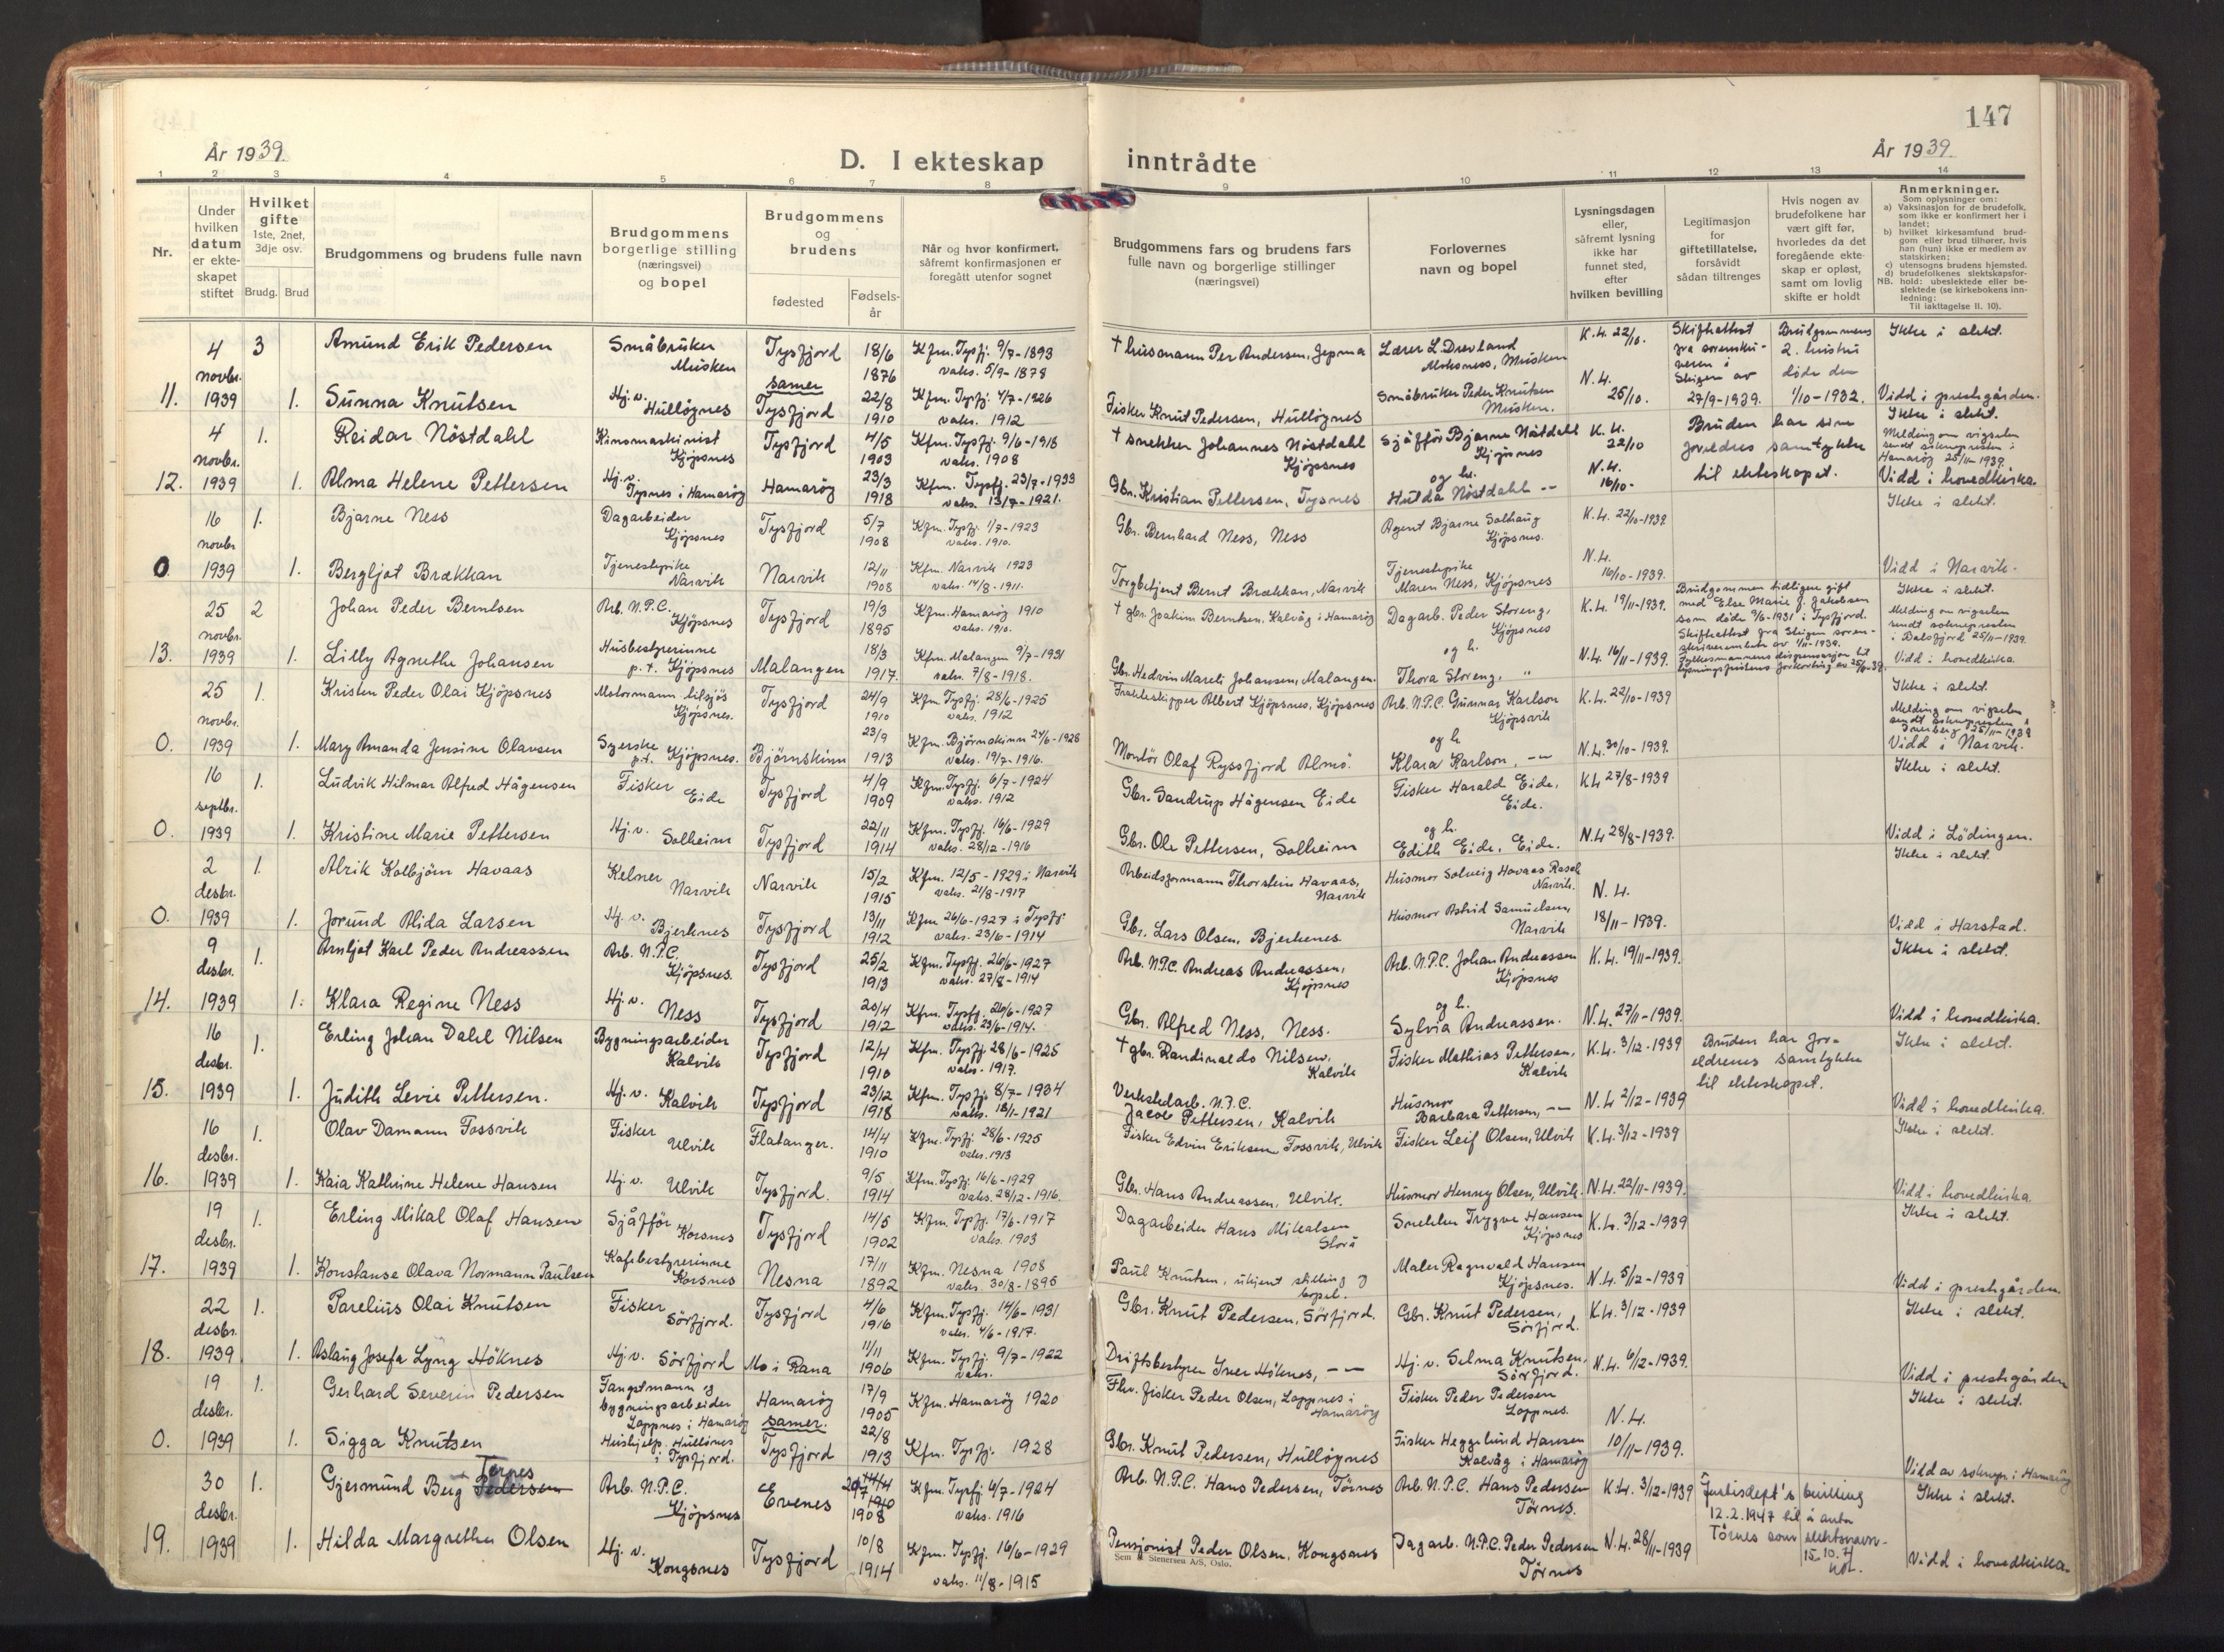 147
År 1939.
D. I ekteskap
inntrådte
År 1939.
1 2 3 4 5 6 7 8 9 10 11 12 13 14
Nr.
Under
hvilken
datum
er ekte-
skapet
stiftet
Hvilket
gifte
1ste, 2net,
3dje osv.
Brudg. Brud
Brudgommens og brudens fulle navn
Brudgommens
borgerlige stilling
(næringsvei)
og bopel
Brudgommens
og
brudens
fødested
Fødsels-
år
Når og hvor konfirmert,
såfremt konfirmasjonen er
foregått utenfor sognet
Brudgommens fars og brudens fars
fulle navn og borgerlige stillinger
(næringsvei)
Forlovernes
navn og bopel
Lysningsdagen
eller,
såfremt lysning
ikke har
funnet sted,
efter
hvilken bevilling
Legitimasjon
for
giftetillatelse,
forsåvidt
sådan tiltrenges
Hvis nogen av
brudefolkene har
vært gift før,
hvorledes da det
foregående ekte-
skap er opløst,
samt om lovlig
skifte er holdt
Anmerkninger.
Som oplysninger om:
a) Vaksinasjon for de brudefolk,
som ikke er konfirmert her i
landet;
b) hvilket kirkesamfund brud-
gom eller brud tilhører, hvis
han (hun) ikke er medlem av
statskirken;
c) utensogns brudens hjemsted.
d) brudefolkenes slektskapsfor-
hold: ubeslektede eller be-
slektede (se kirkebokens inn-
ledning:
NB. Til iakttagelse II. 10).
4 novbr. 3 Amund Erik Pedersen Småbruker Musken Tysfjord 18/6 1876 Kfm. Tysfj. 9/7-1893 vaks. 5/9-1878 † husmann Per Andersen, Jepma Lærer L. Drevland Moksness, Musken K.L. 22/10. Skifteattest fra sorenskriveren i Steigen av 27/9-1939. Brudgommens 2. hustru døde den 1/10-1932. Ikke i slekt.
samer
11. 1939 1. Sunna Knutsen Hj.v. Hulløgnes Tysfjord 22/8 1910 Kfm. Tysfj. 4/7-1926 vaks. 1912 Fisker Knut Pedersen, Hulløgnes Småbruker Peder Knutsen Musken. N.L. 25/10. Vidd i prestegården.
4 novbr. 1. Reidar Nöstdahl Kinomaskinist Kjöpsnes Tysfjord 4/5 1903 Kfm. Tysfj. 9/6-1918 vaks. 1908 † snekker Johannes Nöstdahl Kjöpsnes Sjåfför Bjarne Nöstdahl Kjöpsnes og h. K.L. 22/10 Bruden har sine foreldres samtykke til ekteskapet. Ikke i slekt. Melding om vigselen sendt sokneprest i Hamaröy 25/11-1939.
12. 1939 1. Alma Helene Pettersen Hj.v. Tysnes i Hamaröy Hamaröy 23/3 1918 Kfm. Tysfj. 23/7-1933 vaks. 13/7-1921. Gbr. Kristian Pettersen, Tysnes Hulda Nöstdahl -- N.L. 16/10- Vidd i hovedkirka.
16 novbr 1. Bjarne Ness Dagarbeider Kjöpsnes Tysfjord 5/7 1908 Kfm. Tysfj. 1/7-1923 vaks. 1910. Gbr. Bernhard Ness, Ness Agent Bjarne Solhaug Kjöpsnes. K.L. 22/10-1939. Ikke i slekt.
0. 1939 1. Bergljot Brækkan Tjenestepike Narvik Narvik 12/11 1908 Kfm. Narvik 1923 vaks. 14/8-1911. Torgbetjent Bernt Brækkan, Narvik Tjenestepike Maren Ness, Kjöpsnes N.L. 16/10-1939. Vidd i Narvik.
25 novbr. 2 Johan Peder Berntsen Arb. N.P.C. Kjöpsnes Tysfjord 19/3 1895 Kfm. Hamaröy 1910 vaks. 1910. † gbr. Joakim Berntsen, Kalvåg i Hamaröy Dagarb. Peder Storeng, Kjöpsnes og h. K.L. 19/11-1939. Brudgommen tidligere gift med Else Marie J. Jakobsen som döde 9/6-1931 i Tysfjord. Skifteattest fra Steigen sorenskriverembete av 1/11-1939. Fylkesmannens dispensasjon til lysningsfristens forkorting av 25/11-39. Ikke i slekt. Melding om vigselen sendt soknepresten i Balsfjord 25/11-1939.
13. 1939 1. Lilly Agnethe Johansen Husbestyrerinne p.t. Kjöpsnes Malangen 18/3 1917. Kfm. Malangen 9/7-1931 vaks. 7/8-1918. Gbr. Hedvin Mareti Johansen, Malangen. Thora Storeng, " N.L. 16/11-1939. Vidd i hovedkirka.
25 novbr. 1. Kristen Peder Olai Kjöpsnes Motormann tilsjös Kjöpsnes. Tysfjord 24/9 1910 Kfm Tysfj. 28/6-1925 vaks. 1912 Frakteskipper Albert Kjöpsnes, Kjöpsnes Arb. N.P.C. Gunnar Karlson Kjöpsvik og h. K.L. 22/10-1939 Ikke i slekt. Melding om vigselen sendt soknepresten i 25/11-1939
0. 1939 1. Mary Amanda Jensine Olavsen Syerske p.t. Kjöpsnes. Björnskinn 23/9 1913 Kfm. Björnskinn 24/6-1928 vaks. 19/7-1916. Montör Olaf Ryssfjord Almö. Klara Karlson, -- N.L. 30/10-1939. Vidd i Narvik.
16 septbr. 1. Ludvik Hilmar Alfred Hågensen Fisker Eide Tysfjord 4/9 1909 Kfm. Tysfj. 6/7-1924 vaks. 1912 Gbr. Sandrup Hågensen Eide Fisker Harald Eide, Eide. og h. K.L 27/8-1939 Ikke i slekt.
0. 1939 1. Kristine Marie Pettersen Hj.v. Solheim Tysfjord 22/11 1914 Kfm. Tysfj. 16/6-1929 vaks. 28/12-1916 Gbr. Ole Pettersen, Solheim Edith Eide, Eide. N.L 28/8-1939. Vidd i Lödingen.
2 desbr. 1. Alrik Kolbjörn Havaas Kelner Narvik Narvik 15/2 1915 Kfm. 12/5-1929 i Narvik vaks. 21/8-1917 Arbeidsformann Thorstein Havaas, Narvik Husmor Solveig Havaas Rasch Narvik. N.L. Ikke i slekt.
0. 1939 1. Jorund Alida Larsen Hj.v. Bjerknes Tysfjord 13/11 1912 Kfm 26/6-1927 i Tysfj. vaks. 23/6-1914 Gbr. Lars Olsen, Bjerknes Husmor Astrid Samuelsen, Narvik 18/11-1939. Vidd i Harstad.
9 desbr. 1. Arnljot Karl Peder Andreassen Arb. N.P.C. Kjöpsnes. Tysfjord 25/2 1913 Kfm. Tysfj. 26/6-1927 vaks. 27/8-1914 Arb. N.P.C. Andreas Andreassen, Kjöpsnes Arb. N.P.C. Johan Andreassen Kjöpsnes og h. K.L. 19/11-1939. Ikke i slekt.
14. 1939 1. Klara Regine Ness Hj.v. Ness Tysfjord 20/4 1912 Kfm. Tysfj. 26/6-1927 vaks. 23/6-1914. Gbr. Alfred Ness, Ness. Sylvia Andreassen. N.L. 27/11-1939. Vidd i hovedkirka.
16 desbr. 1. Erling Johan Dahl Nilsen Bygningsarbeider Kalvik Tysfjord 12/4 1910 Kfm. Tysfj. 28/6-1925 vaks. 1917. † gbr. Randinaldo Nilsen, Kalvik Fisker Mathias Pettersen, Kalvik K.L. 3/12-1939 Bruden har foreldrenes samtykke til ekteskapet. Ikke i slekt.
15. 1939 1. Judith Levie Pettersen. Hj.v. Kalvik Tysfjord 23/12 1918 Kfm. Tysfj. 8/7-1934 vaks. 18/1-1921 Verkstedarb. N.P.C. Jacob Pettersen, Kalvik Husmor Barbara Pettersen, -- N.L. 2/12-1939 Vidd i hovedkirka.
16 desbr. 1. Olav Damann Fossvik Fisker Ulvik Flatanger. 14/4 1910 Kfm. Tysfj. 28/6-1925 vaks. 1913 Fisker Edvin Eriksen Fossvik, Ulvik Fisker Leif Olsen, Ulvik K.L. 3/12-1939 Ikke i slekt.
16. 1939 1. Kaia Kathrine Helene Hansen Hj.v. Ulvik Tysfjord. 9/5 1914 Kfm. Tysfj. 16/6-1929 vaks. 28/12-1916. Gbr. Hans Andreassen, Ulvik. Husmor Henny Olsen, Ulvik. N.L. 22/11-1939. Vidd i hovedkirka.
19 desbr. 1. Erling Mikal Olaf Hansen Sjåfför Korsnes Tysfjord 14/5 1902 Kfm. Tysfj. 17/6-1917 vaks. 1903 Dagarbeider Hans Mikalsen Storå Snekker Trygve Hansen Kjöpsnes K.L. 3/12-1939 Ikke i slekt.
17. 1939 1. Konstanse Olava Normann Paulsen Kafebestyrerinne Korsnes Nesna 17/11 1892 Kfm. Nesna 1908 vaks. 30/8-1895 Paul Knutsen, ukjent stilling og bopel. Maler Ragnvald Hansen Kjöpsnes. N.L. 5/12-1939 Vidd i prestegården
22 desbr. 1. Parelius Olai Knutsen Fisker Sörfjord. Tysfjord 4/6 1916 Kfm. Tysfj. 14/6-1931 vaks. 4/6-1917. Gbr. Knut Pedersen, Sörfjord. Gbr. Knut Pedersen, Sörfjord. K.L. 3/12-1939 Ikke i slekt.
18. 1939 1. Aslaug Josefa Lyng Höknes Hj.v. Sörfjord Mo i Rana 11/11 1906 Kfm. Tysfj. 9/7-1922 vaks. Driftsbestyrer Iver Höknes, -- Hj.v. Selma Knutsen, Sörfjord. N.L. 6/12-1939. Vidd i prestegården
19 desbr. 1. Gerhard Severin Pedersen Fangstmann og bygningsarbeider Lappnes i Hamaröy Hamaröy 17/9 1905 Kfm. Hamaröy 1920 Fhv. fisker Peder Olsen, Lappnes i Hamaröy Fisker Peder Pedersen Lappnes. N.L. Ikke i slekt.
samer.
0. 1939 1. Sigga Knutsen Hushjelp. Hullögnes i Tysfjord. Tysfjord 22/8 1913 Kfm. Tysfj. 1928 Gbr. Knut Pedersen, Hullögnes Fisker Heggelund Hansen Kalvåg i Hamaröy 10/11-1939. Vidd av soknepr. i Hamaröy
30 desbr. 1. Gjermund Berg Pedersen Törnes Arb. N.P.C. Kjöpsnes Evenes 1910 1908 Kfm. Tysfj. 6/7-1924 vaks. 1916 Arb. N.P.C. Hans Pedersen, Törnes Arb. N.P.C. Hans Pedersen Törnes. K.L. 3/12-1939 Justisdept's bevilling 12.2.1947 til å anta Törnes som slektsnavn- 15.10.71 Ikke i slekt.
19. 1939 1. Hilda Margrethe Olsen Hj.v. Kongsnes Tysfjord 10/8 1914 Kfm. Tysfj. 16/6-1929 vaks. 11/8-1915 Pensjonist Peder Olsen, Kongsnes Dagarb. N.P.C. Peder Pedersen Törnes N.L. 28/11-1939 Vidd i hovedkirka.
Sem & Stenersen A/S, Oslo.